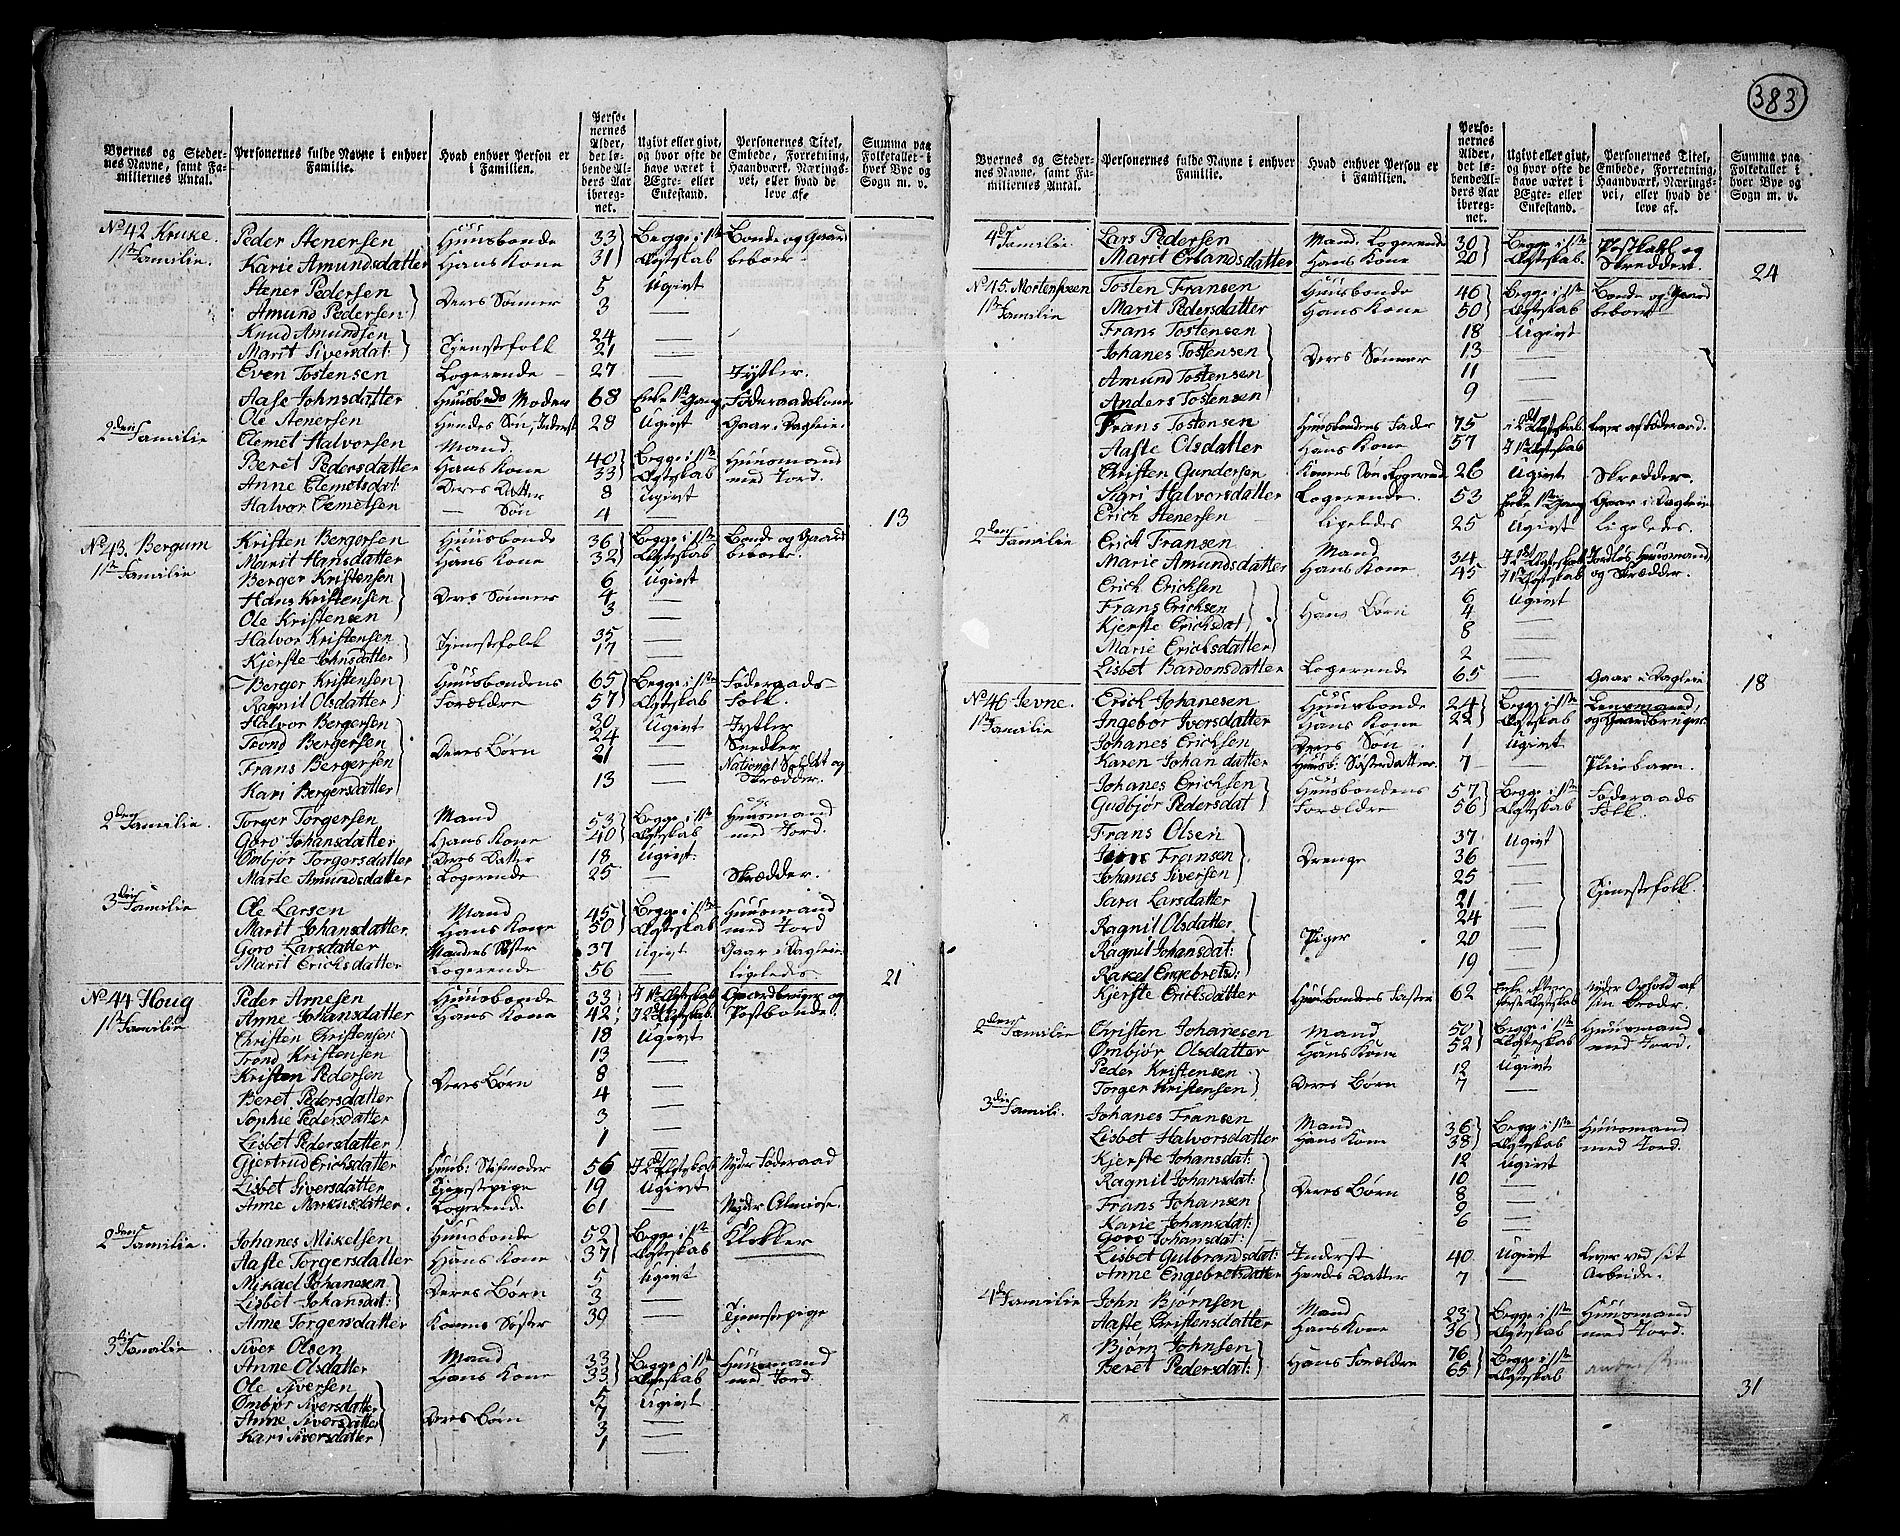 383
Byernes og Stedernes Navne, samt Familiernes Antal.
Personernes fulde Navne i enhver Familie.
Hvad enhver Person er i Familien.
Personernes Alder, det løbende Alders Aar iberegnet.
Ugivt eller givt, og hvor ofte de have været i Ægte- eller Enkestand.
Personernes Titel, Embede, Forretning, Haandværk, Næringsvei, eller hvad de leve af.
Summa paa Folketallet i hver Bye og Sogn m. v.
No 42 Kruke. Peder Stenersen Huusbonde 33 Begge i 1ste Bonde og Gaard
1ste Familie. Karie Amundsdatter Hans Kone 31 Ægteskab beboer.
Stener Pedersen 5 Ugivt
Amund Pedersen Deres Sønner 3 —
Knud Amundsen 24 —
Marit Siversdat: Tjenestefolk 21 —
Even Tostensen Logerende 27 — Jydsler.
Aase Johnsdatter Huusbonds Moder 68 Enke 1ste Gang Føderaadskone
Ole Stenersen Hendes Søn, Inderst 28 Ugivt Gaar i Dagleie
2den Familie Clemet Halvorsen Mand 40 Begge i 1ste Huusmand
Beret Pedersdatter Hans Kone 33 Ægteskab med Jord.
Anne Clemetsdat: Deres Datter 8 Ugivt
Halvor Clemetsen — Søn 4 —
13
No 43. Bergum Kristen Bergersen Huusbonde 36 Begge i 1ste Bonde og Gaard
1ste Familie Marit Hansdatter Hans Kone 32 Ægteskab beboer.
Berger Kristensen 6 Ugivt
Hans Kristensen Deres Sønner 4 —
Ole Kristensen 3 —
Halvor Kristensen Tjenestefolk 35 —
Kjerste Johnsdatter 17 —
Berger Kristensen Huusbondens 65 Begge i 1ste Føderaads-
Ragnil Olsdatter Forældre 57 Ægteskab Folk.
Halvor Bergersen 30 Ugivt Jydsler
Trond Bergersen 24 — Snedker
Frans Bergersen Deres Børn 21 — National Soldat og
Kari Bergersdatter 13 — Skrædder.
2den Familie. Torger Torgersen Mand 53 Begge i 1ste Huusmand
Goro Johansdatter Hans Kone 40 Ægteskab med Jord.
Ømbjør Torgersdatter Deres Datter 18 Ugivt.
Marte Amundsdatter Logerende 25 — Skrædder.
3die Familie Ole Larsen Mand 45 Begge i 1ste Huusmand
Marit Johansdatter Hans Kone 50 Ægteskab med Jord
Goro Larsdatter Mandens Søster 37 Ugivt Gaar i Dagleie
Marit Ericksdatter Logerende 56 — Ligeleds
21
No 44 Houg Peder Arnesen Huusbonde 33 I 1ste Ægteskab Gaardbruger og
1ste Familie Anne Johansdatter Hans Kone 42 I 2det Ægteskab Postbonde.
Christen Christensen 18 Ugivt
Trond Kristensen 13 —
Kristen Pedersen Deres Børn 8 —
Beret Pedersdatter 4 —
Sophie Pedersdatter 3 —
Lisbet Pedersdatter 1 —
Gjertrud Ericksdatter Huusb: Stifmoder 56 I 2det Ægteskab Nyder Føderaad
Lisbet Siversdatter Tjenestepige 19 Ugivt
Anne Markusdatter. Logerend. 61 — Nyder Almisse.
2den Familie. Johanes Mikelsen Huusbonde 52 Begge i 1ste Klokker
Aaste Torgersdatter Hans Kone 37 Ægteskab
Mikael Johanesen 5 Ugivt
Lisbet Johansdat: Deres Børn 3 —
Anne Torgersdatter Konens Søster 39 — Tjenestepige
3die Familie Siver Olsen Mand 33 Begge i 1ste Huusmand
Anne Olsdatter Hans Kone 33 Ægteskab med Jord.
Ole Siversen 5 Ugivt
Ømbjør Siversdatter 7 —
Anne Siversdatter Deres Børn 3 —
Kari Siversdatter 1 —
Byernes og Stedernes Navne, samt Familiernes Antal.
Personernes fulde Navne i enhver Familie.
Hvad enhver Person er i Familien.
Personernes Alder, det løbende Alders Aar iberegnet.
Ugivt eller givt, og hvor ofte de have været i Ægte- eller Enkestand.
Personernes Titel, Embede, Forretning, Haandværk, Næringsvei, eller hvad de leve af.
Summa paa Folketallet i hver Bye og Sogn m. v.
4de Familie Lars Pedersen Mand. Logerende 30 Begge i 1ste Postkarl og
Marit Erlandsdatter Hans Kone 20 Ægteskab. Skredder.
24
No 45. Mortenseen Tosten Fransen Huusbonde 46 Begge i 1ste Bonde og Gaard
1ste Familie Marit Pedersdatter Hans Kone 50 Ægteskab beboer
Frans Tostensen 18 Ugivt
Johanes Tostensen Deres Sønner 13 —
Amund Tostensen 11 —
Anders Tostensen 9 —
Frans Tostensen Huusbondens Fader 75 i 2det Ægteskab. Lever af Føderaad.
Aaste Olsdatter Hans Kone 57 I 1ste Ægteskab
Christen Gundersen Konens Søn Logerend 26 Ugivt Skredder.
Sigri Halvorsdatter Logerende. 53 Enke 1ste Gang Gaar i Dagleie
Erick Stenersen — ligeledes 25 Ugivt ligeledes.
2den Familie Erick Fransen Mand 34 I 1ste Ægteskab Jordløs Huusmand
Marie Amundsdatter Hans Kone 45 I 1ste Ægteskab og Skrædder.
Erick Ericksen 6 Ugivt
Frans Ericksen Hans Børn 4 —
Kjerste Ericksdat 8 —
Marie Ericksdatter 2 —
Lisbet Bardonsdatter Logerende 65 — Gaar i Dagleie
18
No 46 Jevne. Erick Johanesen Huusbonde 24 Begge i 1ste Lensmand,
1ste Familie Ingebor Iversdatter Hans Kone 22 Ægteskab og Gaardbruger.
Johanes Ericksen Deres Søn 1 Ugivt
Karen Johandatter Huusb: Søsterdatter 7 — Pleiebarn.
Johanes Ericksen Huusbondens 57 Begge i 1ste Føderaads
Gudbjør Pedersdat Forældre 56 Ægteskab Folk.
Frans Olsen 37 Ugivt
Fransen Drenge 36 —
Johanes Siversen 25 —
Sara Larsdatter 21 — Tjenestefolk.
Ragnil Olsdatter 24 —
Ragnil Johansdat: Piger 20 —
Rakel Engebretsd: 19 —
Kjerste Ericksdatter Huusbondens Faster 62 Enke efter første Ægteskab nyder Ophold af sin Broder.
2den Familie Christen Johanesen Mand 50 Begge i 1ste Huusmand
Ømbjør Olsdatter Hans Kone 52 Ægteskab med Jord.
Peder Kristensen 12 Ugivt
Torger Kristensen Deres Børn 7 —
3die Famili. Johanes Fransen Mand 36 Begge i 1ste Huusmand
Lisbet Halvorsdatter Hans Kone 38 Ægteskab med Jord.
Kjerste Johansdat: 12 Ugivt
Ragnil Johansdat: 10 —
Frans Johansen Deres Børn 8 —
Karie Johansdat: 2 —
Goro Johansdat: 6 —
Lisbet Gulbransdat: Inderst 40 Ugivt lever ved sit
Anne Engebretsdatter Hendes Datter 7 — Arbeide.
4de Familie John Bjørnsen Mand 23 Begge i 1ste Huusmand
Aaste Christensdatter Hans Kone 36 Ægteskab med Jord.
Bjørn Johnsen 76 Begge i 1ste
Beret Pedersdat: Hans Forældre 65 Ægteskab
31